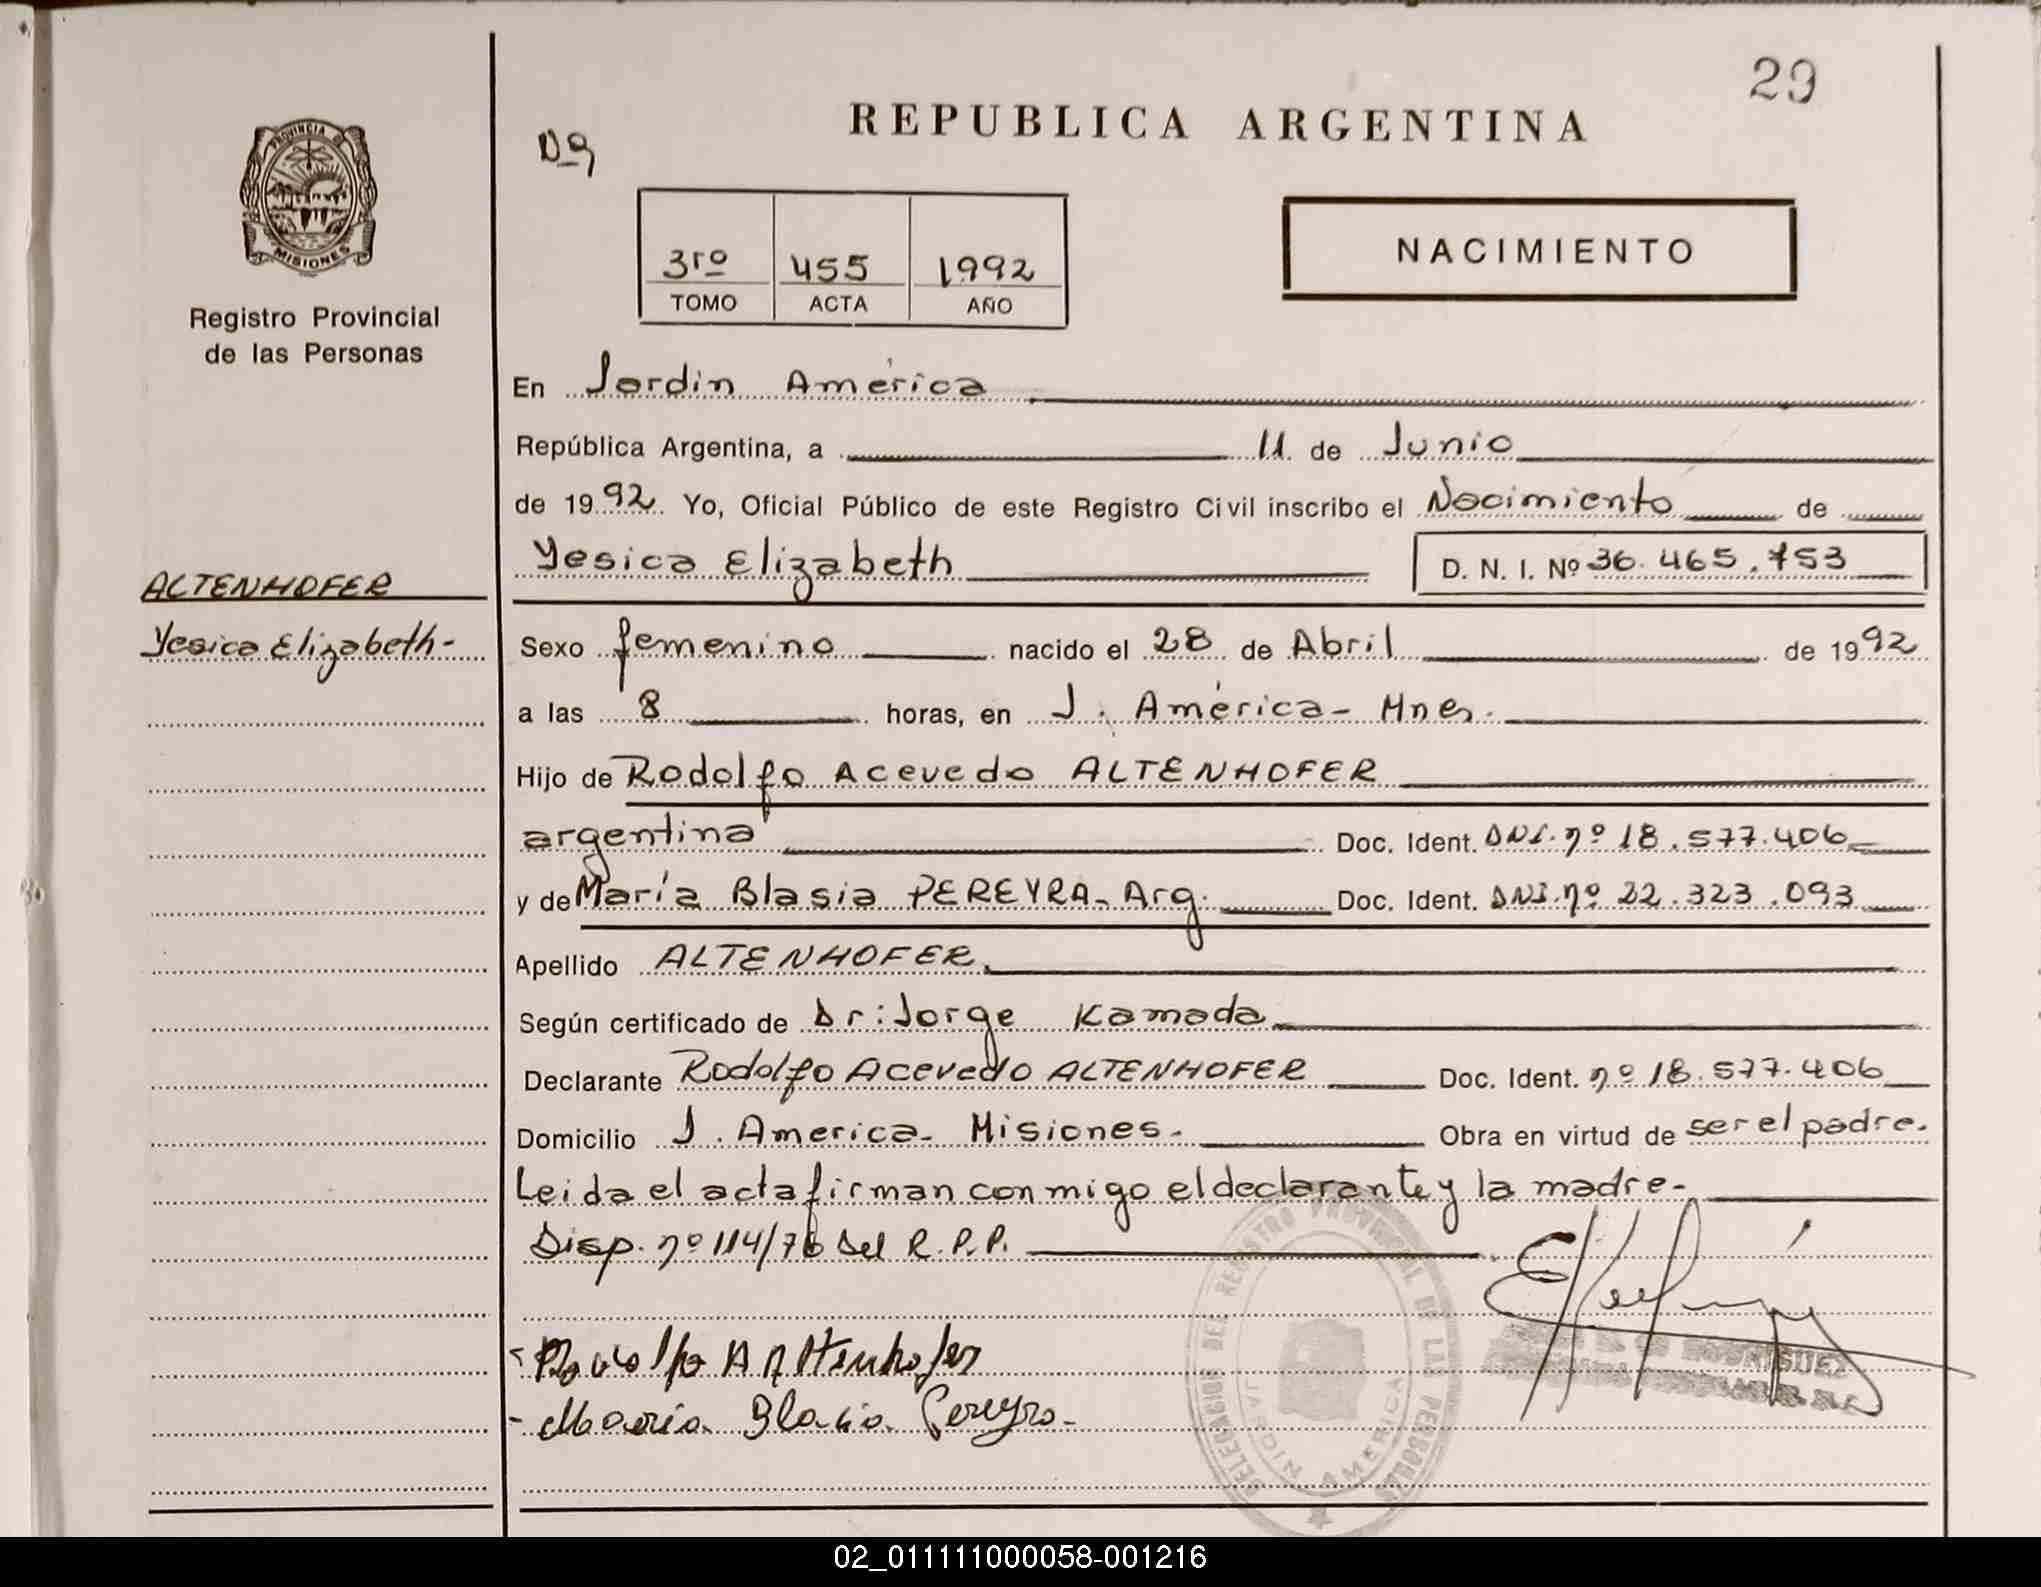 29
REPUBLICA ARGENTINA
PROVINCIA DE
MISIONES
Registro Provincial
de las Personas
3ro 455 1992
TOMO ACTA AÑO
NACIMIENTO
En Jardin América
República Argentina, a 11 de Junio
de 1992 Yo, Oficial Público de este Registro Civil inscribo el Nacimiento de
Yesica Elizabeth D. N. I. Nº 36.465.753
ALTENHOFER
Yesica Elizabeth-
Sexo femenino nacido el 28 de Abril de 1992
a las 8 horas, en J. América- Mnes.
Hijo de Rodolfo Acevedo ALTENHOFER
argentina Doc. Ident. DNI. nº 18.577.406
y de María Blasia PEREYRA- Arg. Doc. Ident. DNI. nº 22.323.093
Apellido ALTENHOFER
Según certificado de Dr: Jorge Kamada
Declarante Rodolfo Acevedo ALTENHOFER Doc. Ident. nº 18.577.406
Domicilio J. America- Misiones- Obra en virtud de ser el padre.
Leida el acta firman conmigo el declarante y la madre-
Disp. nº 114/76 del R.P.P.
Rodolfo A Altenhofer
- Maria Blasia Pereyra-
DELEGACION DEL REGISTRO PROVINCIAL DE LAS PERSONAS
JARDIN AMERICA
RODRIGUEZ
02_011111000058-001216